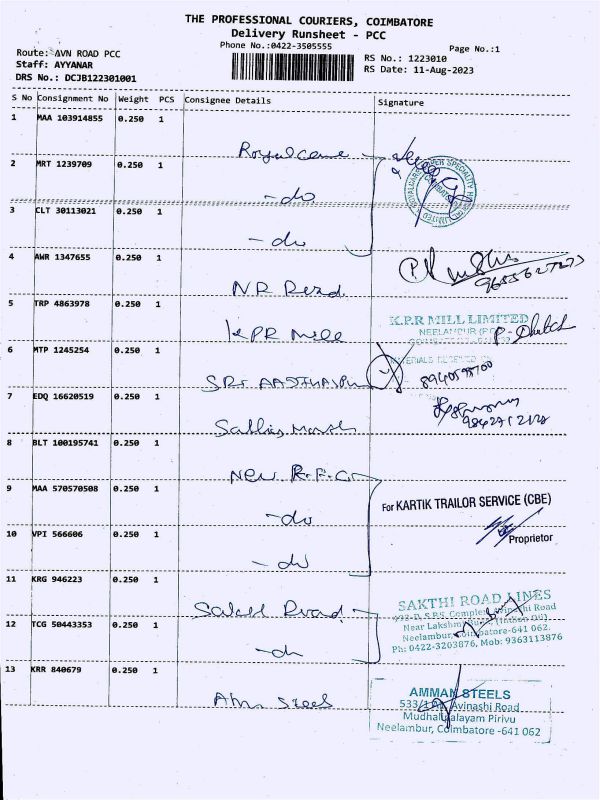 THE PROFESSIONAL COURIERS, COIMBATORE
Delivery Runsheet - PCC
Phone No.:0422-3505555
Page No.:1
Route: AVN ROAD PCC
RS No.: 1223010
Staff: AYYANAR
RS Date: 11-Aug-2023
DRS No.: DCJB122301001
S No Consignment No Weight PCS Consignee Details Signature
1 MAA 103914855 0.250 1
Royalcare
2 MRT 1239709 0.250 1
-do
3 CLT 30113021 0.250 1
-do
4 AWR 1347655 0.250 1
NR Read
5 TRP 4863978 0.250 1
KPR Mill
K.P.R MILL LIMITED
6 MTP 1245254 0.250 1
MATERIALS RECEIVED
8940598700
SRI
7 EDQ 16620519 0.250 1
8 BLT 100195741 0.250 1
New R.F.C
9 MAA 570570508 0.250 1
For KARTIK TRAILOR SERVICE (CBE)
-do
10 VPI 566606 0.250 1
Proprietor
-do
11 KRG 946223 0.250 1
SAKTHI ROAD LINES
Avinashi Road
12 TCG 50443353 0.250 1
Near Lakshmi
Neelambur, Coimbatore-641 062.
Ph: 0422-3203876, Mob: 9363113876
-do
13 KRR 840679 0.250 1
AMMAN STEELS
Avinashi Road
Mudhalipalayam Pirivu
Neelambur, Coimbatore -641 062
Steels